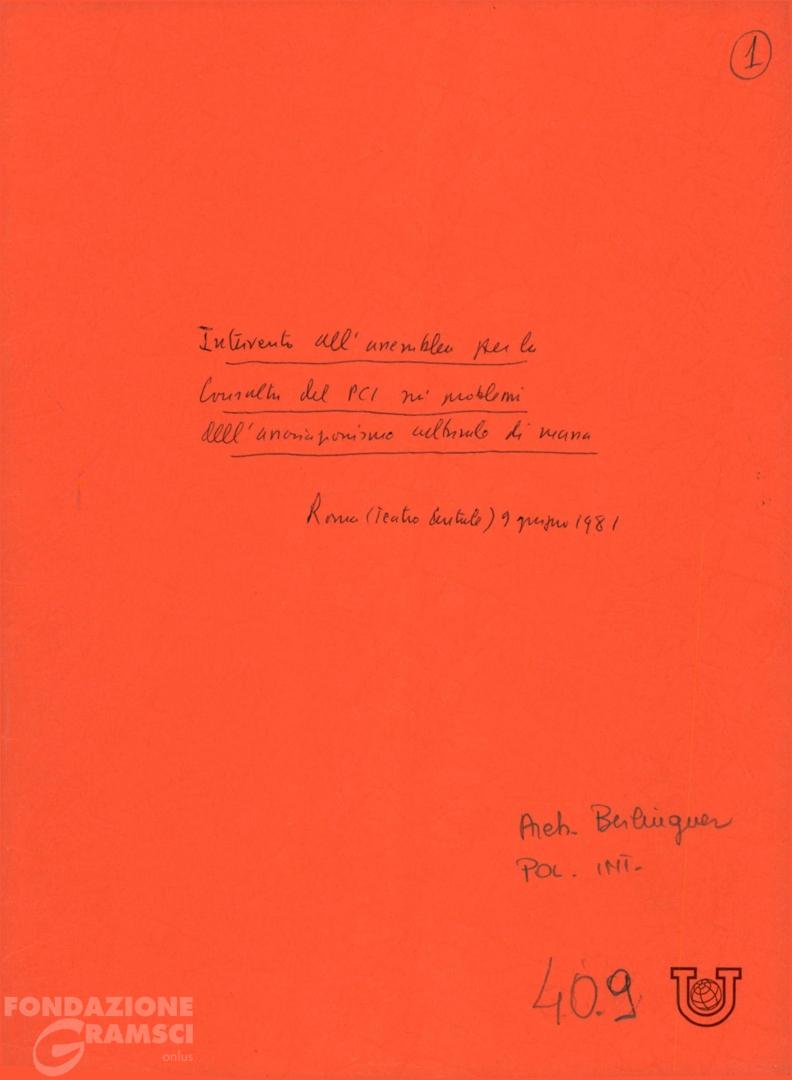 1
Intervento all'assemblea per la
Consulta del PCI sui problemi
dell'associazionismo culturale di massa
Roma (Teatro Centrale) 9 giugno 1981
Arch. Berlinguer
POL. INT.
40.9
FONDAZIONE
GRAMSCI
onlus